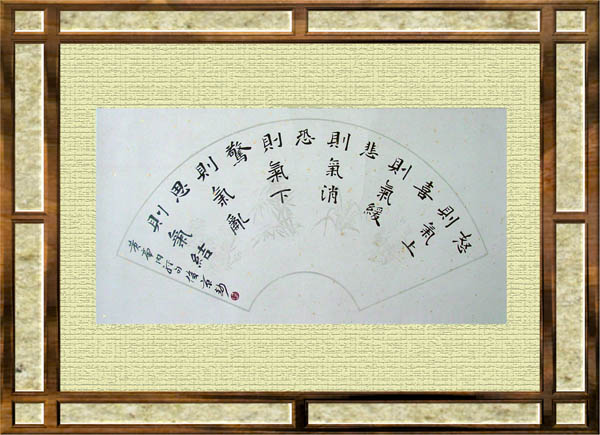 怒
則氣上
喜
則氣緩
悲
則氣消
恐
則氣下
驚
則氣亂
思
則氣結